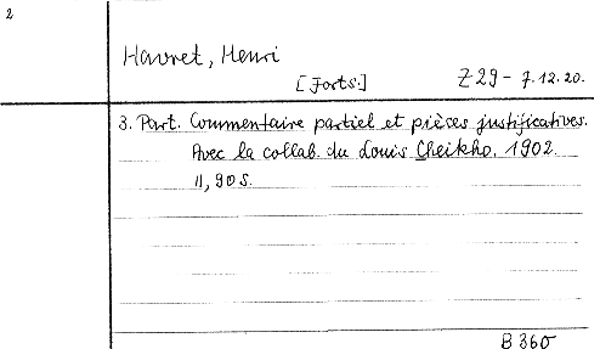 2
Havret, Henri
[Forts.] Z 29 - 7.12.20.
3. Part. Commentaire partiel et pièces justificatives.
Avec la collab. du Louis Cheikho. 1902.
11, 90 S.
B 360